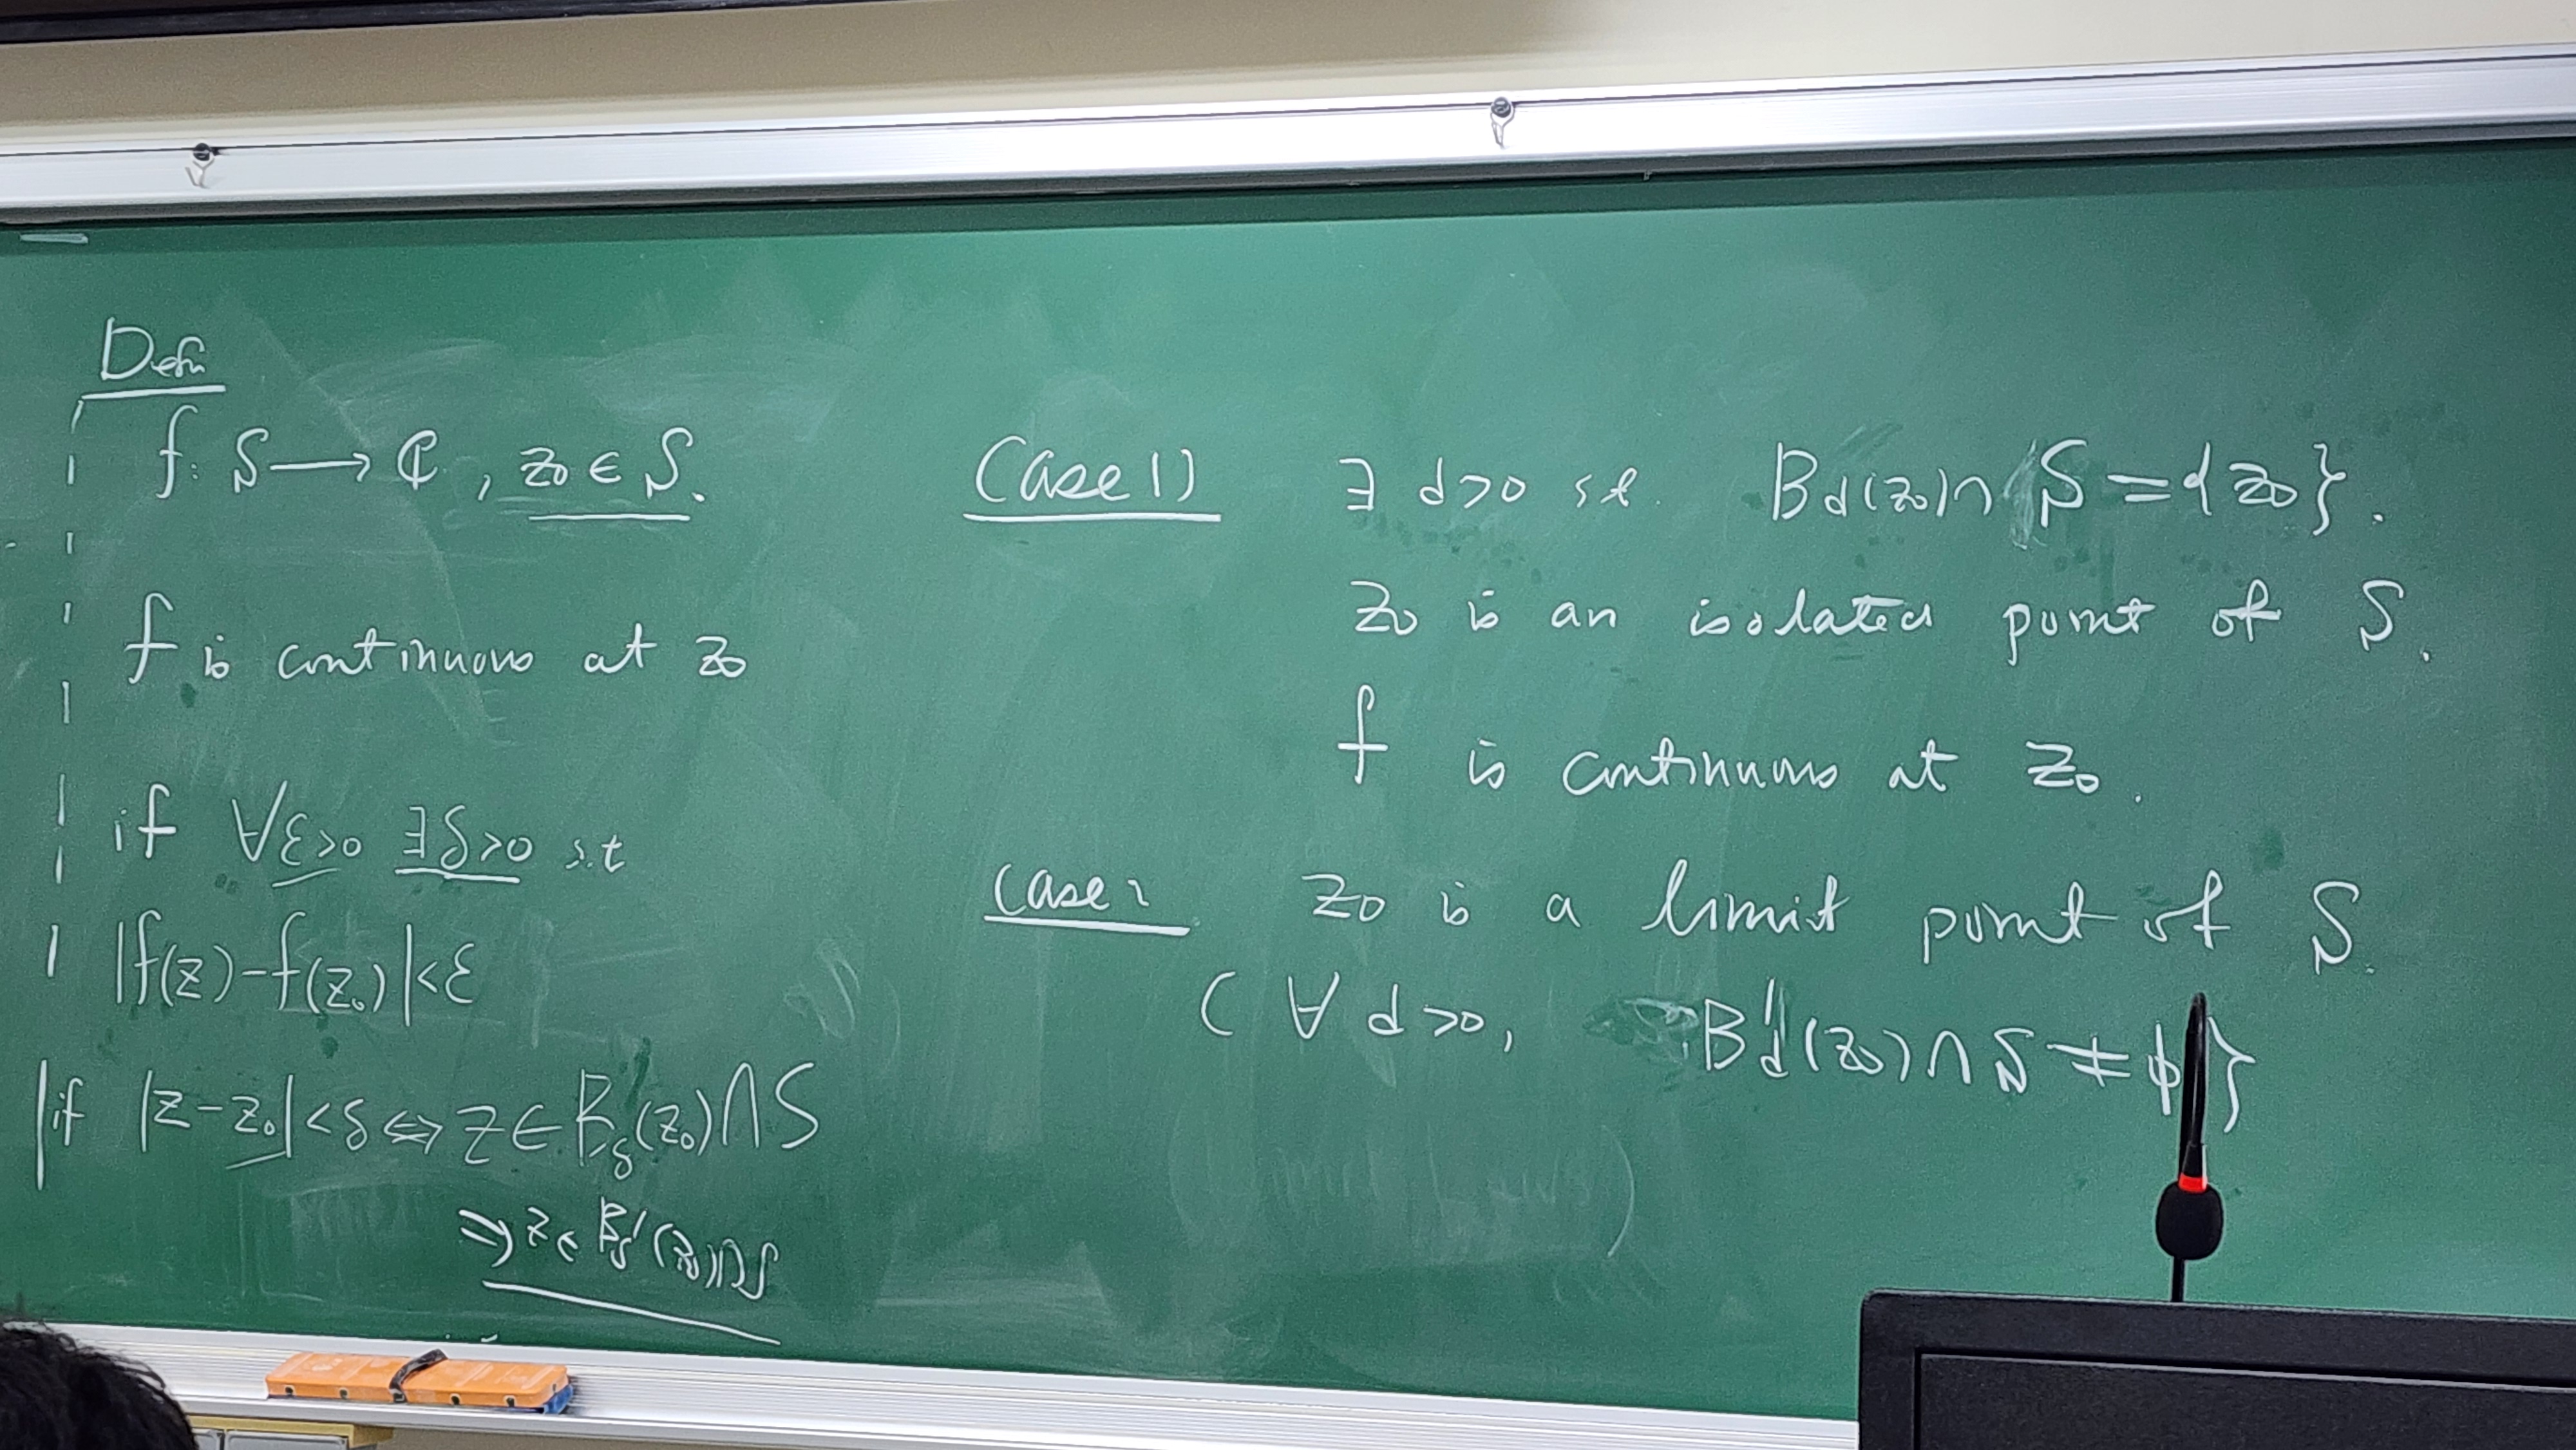 Defn
f: S → ℂ, z₀ ∈ S.
f is continuous at z₀
if ∀ε>0 ∃δ>0 s.t
|f(z)-f(z₀)|<ε
if |z-z₀|<δ ⇔ z ∈ B_δ(z₀)∩S
⇒ z ∈ B'_δ(z₀)∩S
Case 1) ∃ d>0 s.t. B_d(z₀)∩S = {z₀}.
z₀ is an isolated point of S.
f is continuous at z₀.
Case 2 z₀ is a limit point of S.
( ∀ d>0, B'_d(z₀)∩S ≠ ϕ }